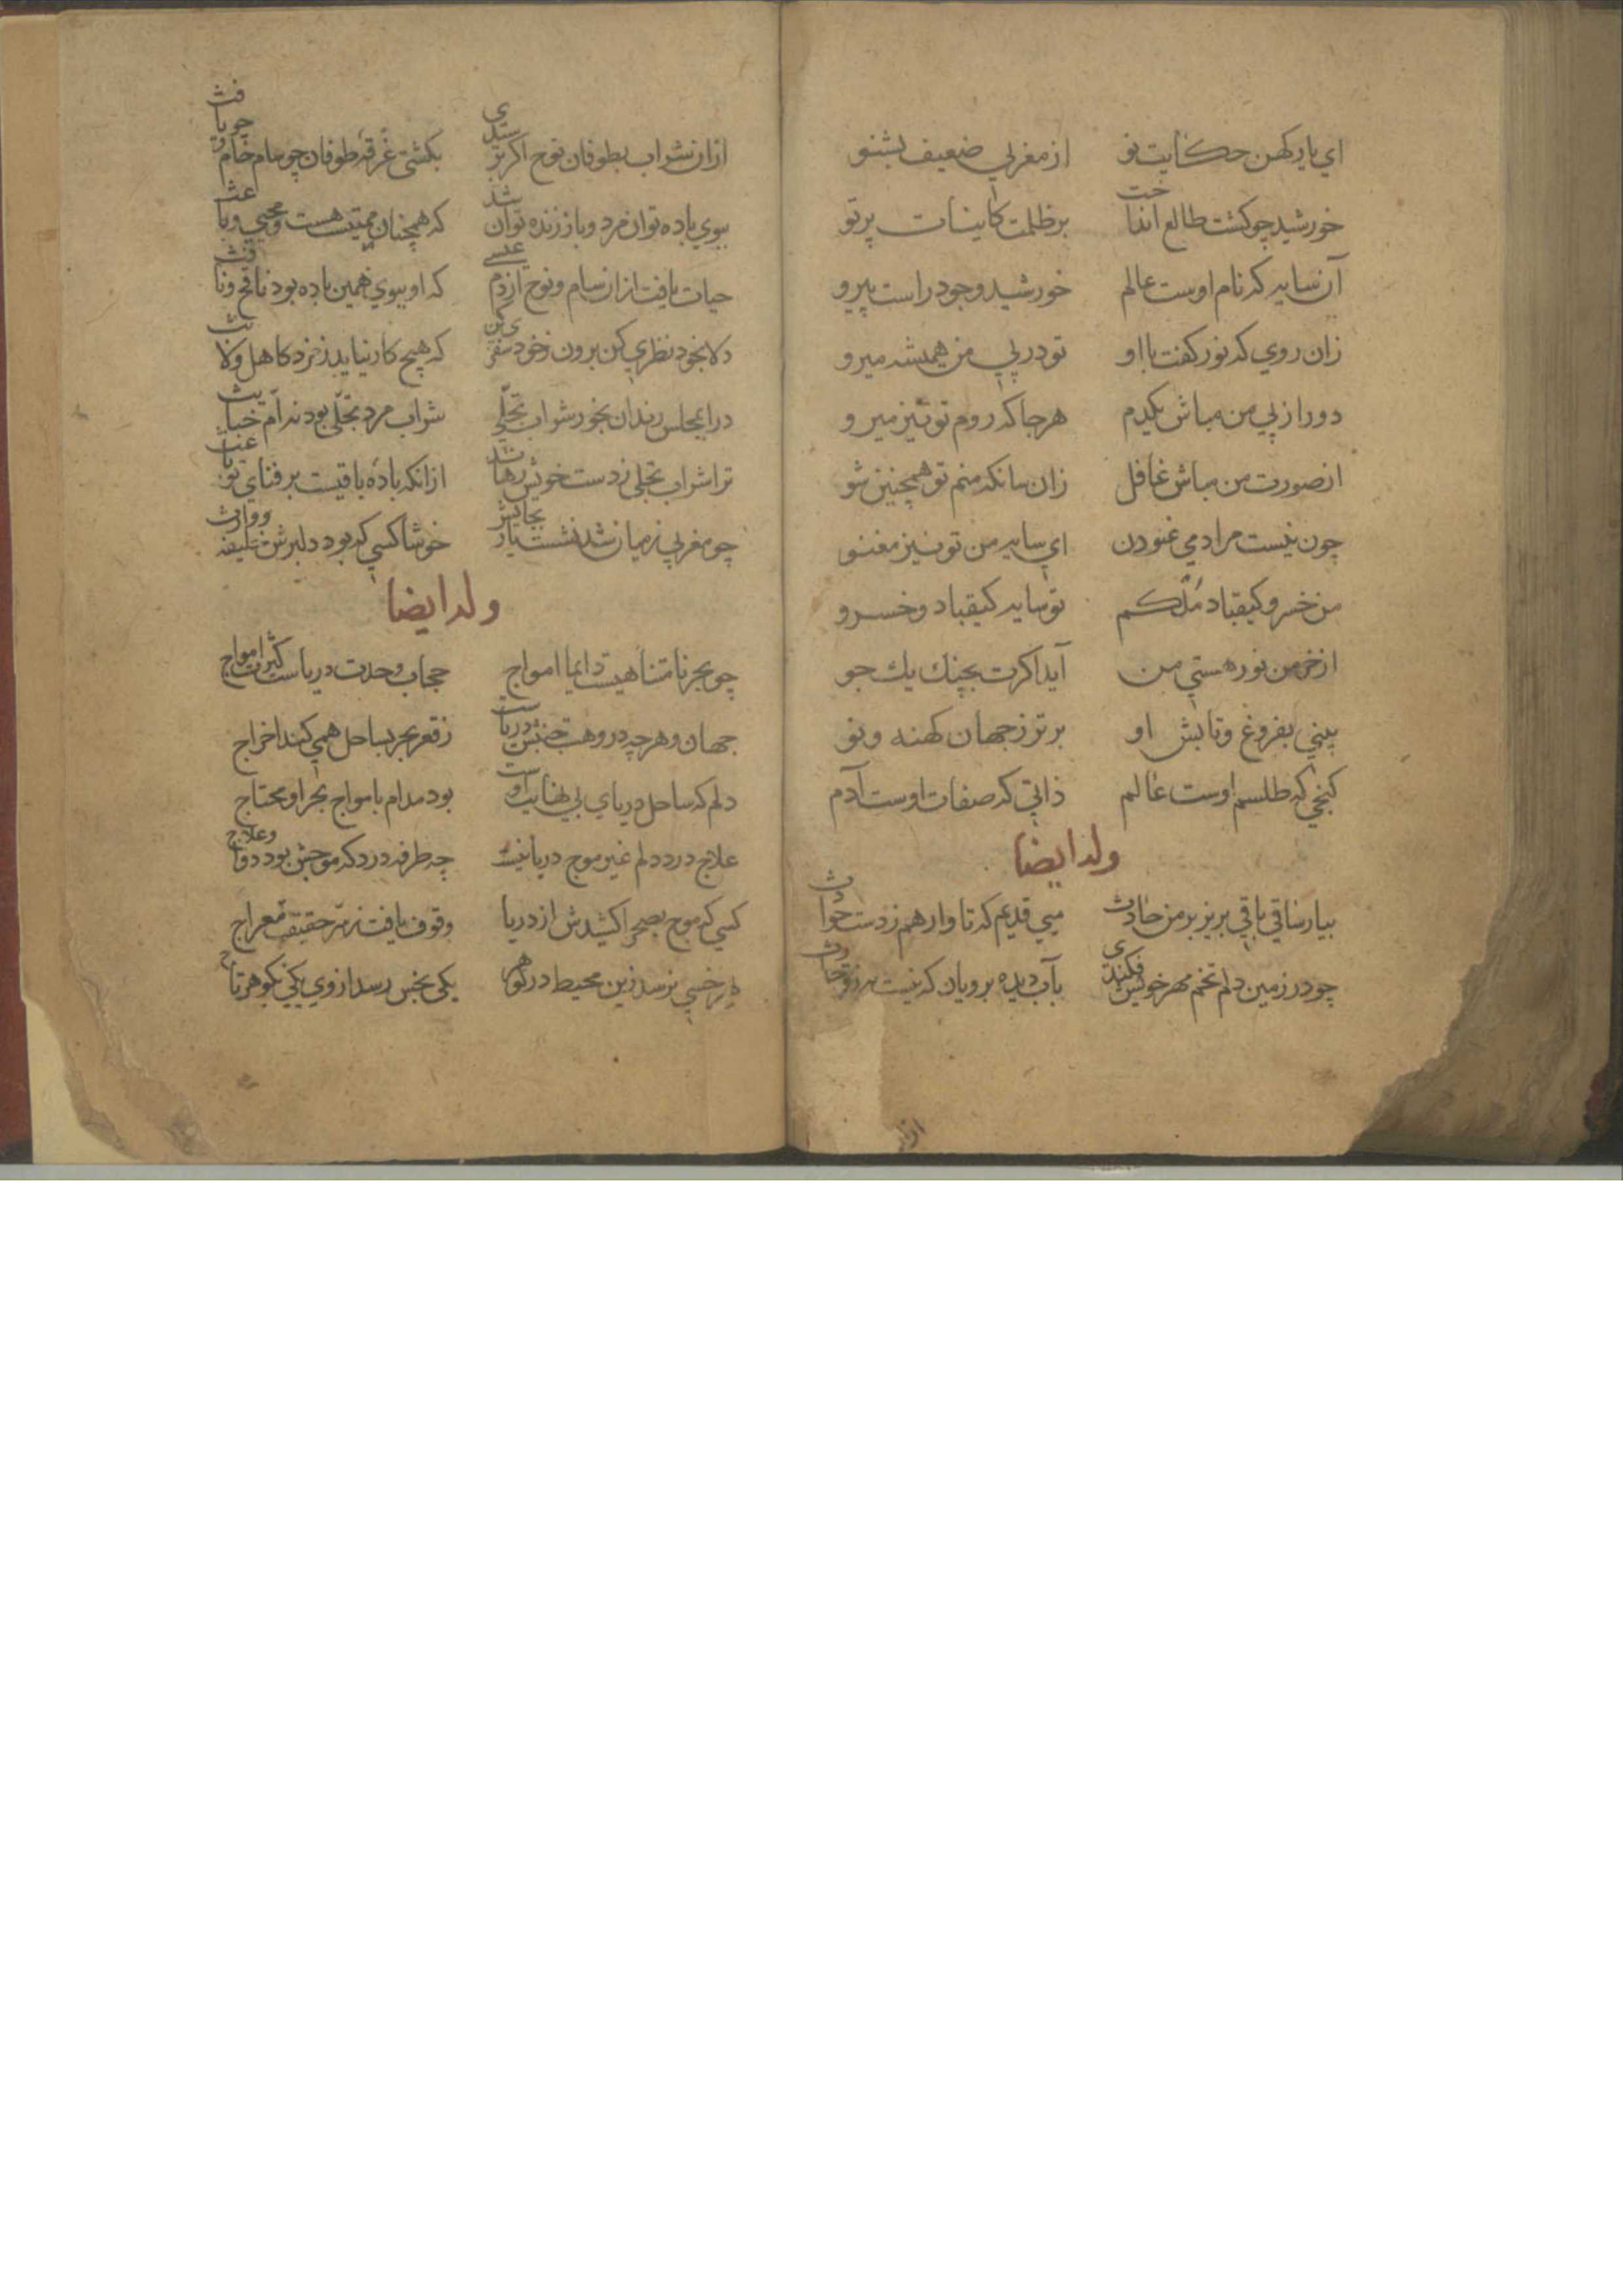 اي يار کهن حکايت نو از مغربي ضعيف بشنو
خورشيد چو کشت طالع انداخت بر ظلمت کاينات پرتو
آن سايه که نام اوست عالم خورشيد وجود راست پيرو
زان روي که نور کفت با او تو در پي من هميشه ميرو
دور از پي من مباش يکدم هر جا که روم تو نيز ميرو
از صورت من مباش غافل زان سانکه منم تو همچنين شو
چون نيست مرا دمي غنودن اي سايه من تو نيز مغنو
من خسرو کيقباد ملکم تو سايه کيقباد و خسرو
از خرمن نور هستي من آيد اکرت بچنک يك جو
بيني بفروغ و تابش او برتر ز جهان کهنه و نو
کنجي که طلسم اوست عالم ذاتي که صفات اوست آدم
وله ايضا
بيار ساقي باقي بريز بر من حادث ميي قديم که تا وارهم ز دست حوادث
چو در زمين دلم تخم مهر خويش فکندي بآب ديده برويان که نيست به ز تو حارث
از ان شراب بطوفان نوح اکر بستدي بکشتي غرقه طوفان چو سام و حام و چو يافث
ببوي باده توان مرد و باز زنده توان شد که همچنان مميت هست و محيي و باعث
حيات يافت از ان سام و نوح از دم عيسي که او ببوي همين باده بود نافح و نافث
دلا بخود نظري کن برون ز خود سفري کن که هيچ کار نيايد ز خرد کاهل و لابث
در ا بمجلس رندان بخور شراب تجلي شراب مرد تجلي بود نه ام خبايث
ترا شراب تجلي ز دست خويش رهاند از انکه باده باقيست بر فناي تو باعث
چو مغربي ز ميان شد نشست يار بجايش خوشا کسي که بود دلبرش خليفه و وارث
وله ايضا
چو بحر نامتناهيست دايما امواج حجاب وحدت درياست کثرت امواج
جهان و هر چه در و هست جنبش درياست ز قعر بحر بساحل همي کند اخراج
دلم که ساحل درياي بي نهايت اوست بود مدام بامواج بحر او محتاج
علاج درد دلم غير موج دريا نيست چه طرفه درد که موجش بود دوا و علاج
کسي که موج بصحرا کشيدش از دريا وقوف يافت ز سر حقيقت معراج
خسي برسد زين محيط در کوهر يکي بخس رسد از وي يکي بکوهر تاج